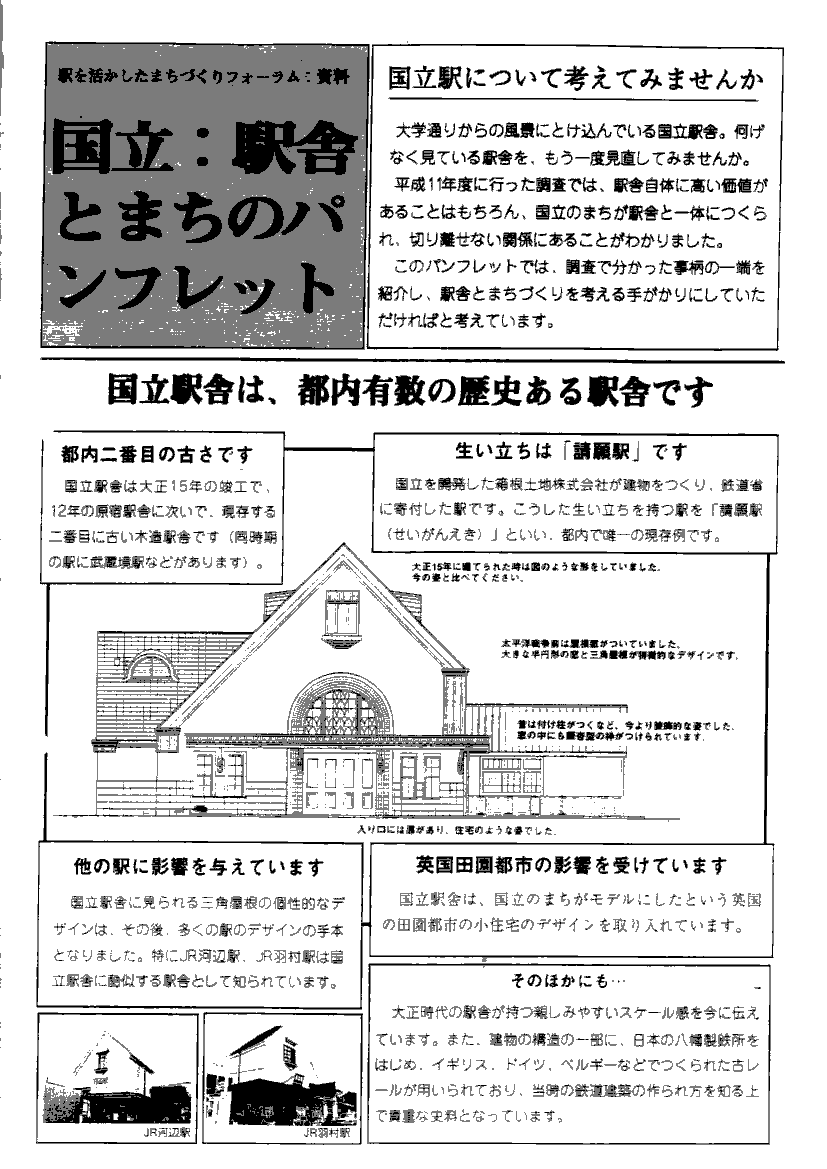 駅を活かしたまちづくりフォーラム：資料
国立：駅舎
とまちのパ
ンフレット
国立駅について考えてみませんか
大学通りからの風景にとけ込んでいる国立駅舎。何げ
なく見ている駅舎を、もう一度見直してみませんか。
平成11年度に行った調査では、駅舎自体に高い価値が
あることはもちろん、国立のまちが駅舎と一体につくら
れ、切り離せない関係にあることがわかりました。
このパンフレットでは、調査で分かった事柄の一端を
紹介し、駅舎とまちづくりを考える手がかりにしていた
だければと考えています。
国立駅舎は、都内有数の歴史ある駅舎です
都内二番目の古さです
国立駅舎は大正15年の竣工で、
12年の原宿駅舎に次いで、現存する
二番目に古い木造駅舎です（同時期
の駅に武蔵境駅などがあります）。
生い立ちは「請願駅」です
国立を開発した箱根土地株式会社が建物をつくり、鉄道省
に寄付した駅です。こうした生い立ちを持つ駅を「請願駅
（せいがんえき）」といい、都内で唯一の現存例です。
大正15年に建てられた時は図のような形をしていました。
今の姿と比べてください。
太平洋戦争前は屋根窓がついていました。
大きな半円形の窓と三角屋根が特徴的なデザインです。
昔は付け柱がつくなど、今より装飾的な姿でした。
窓の中にも
の枠がつけられています。
入り口には扉があり、住宅のような姿でした。
他の駅に影響を与えています
国立駅舎に見られる三角屋根の個性的なデ
ザインは、その後、多くの駅のデザインの手本
となりました。特にJR河辺駅、JR羽村駅は国
立駅舎に酷似する駅舎として知られています。
JR河辺駅
JR羽村駅
英国田園都市の影響を受けています
国立駅舎は、国立のまちがモデルにしたという英国
の田園都市の小住宅のデザインを取り入れています。
そのほかにも…
大正時代の駅舎が持つ親しみやすいスケール感を今に伝え
ています。また、建物の構造の一部に、日本の八幡製鉄所を
はじめ、イギリス、ドイツ、ベルギーなどでつくられた古レ
ールが用いられており、当時の鉄道建築の作られ方を知る上
で貴重な史料となっています。